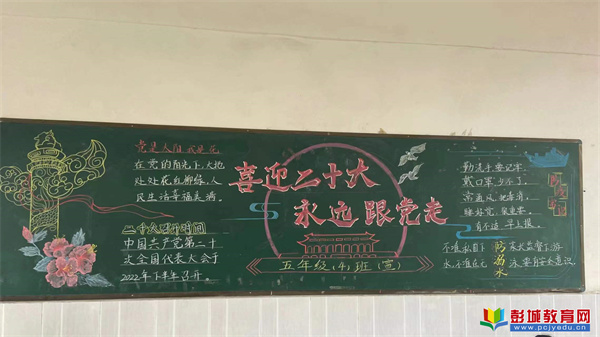 党是太阳我是花
在党的阳光下,大地
处处花红柳绿,人
民生活幸福美满。
二十大召开时间
中国共产党第二十
次全国代表大会于
2022年下半年召开。
喜迎二十大
永远跟党走
五年级(4)班(宣)
勤洗手要记牢
戴口罩,少不了。
常通风,
睡好觉,很重要。
有不适,早上报。
防溺水
不准私自下
水,不准在无
家长监督下游
泳,要有安全意识
彭城教育网
www.pcjyedu.cn